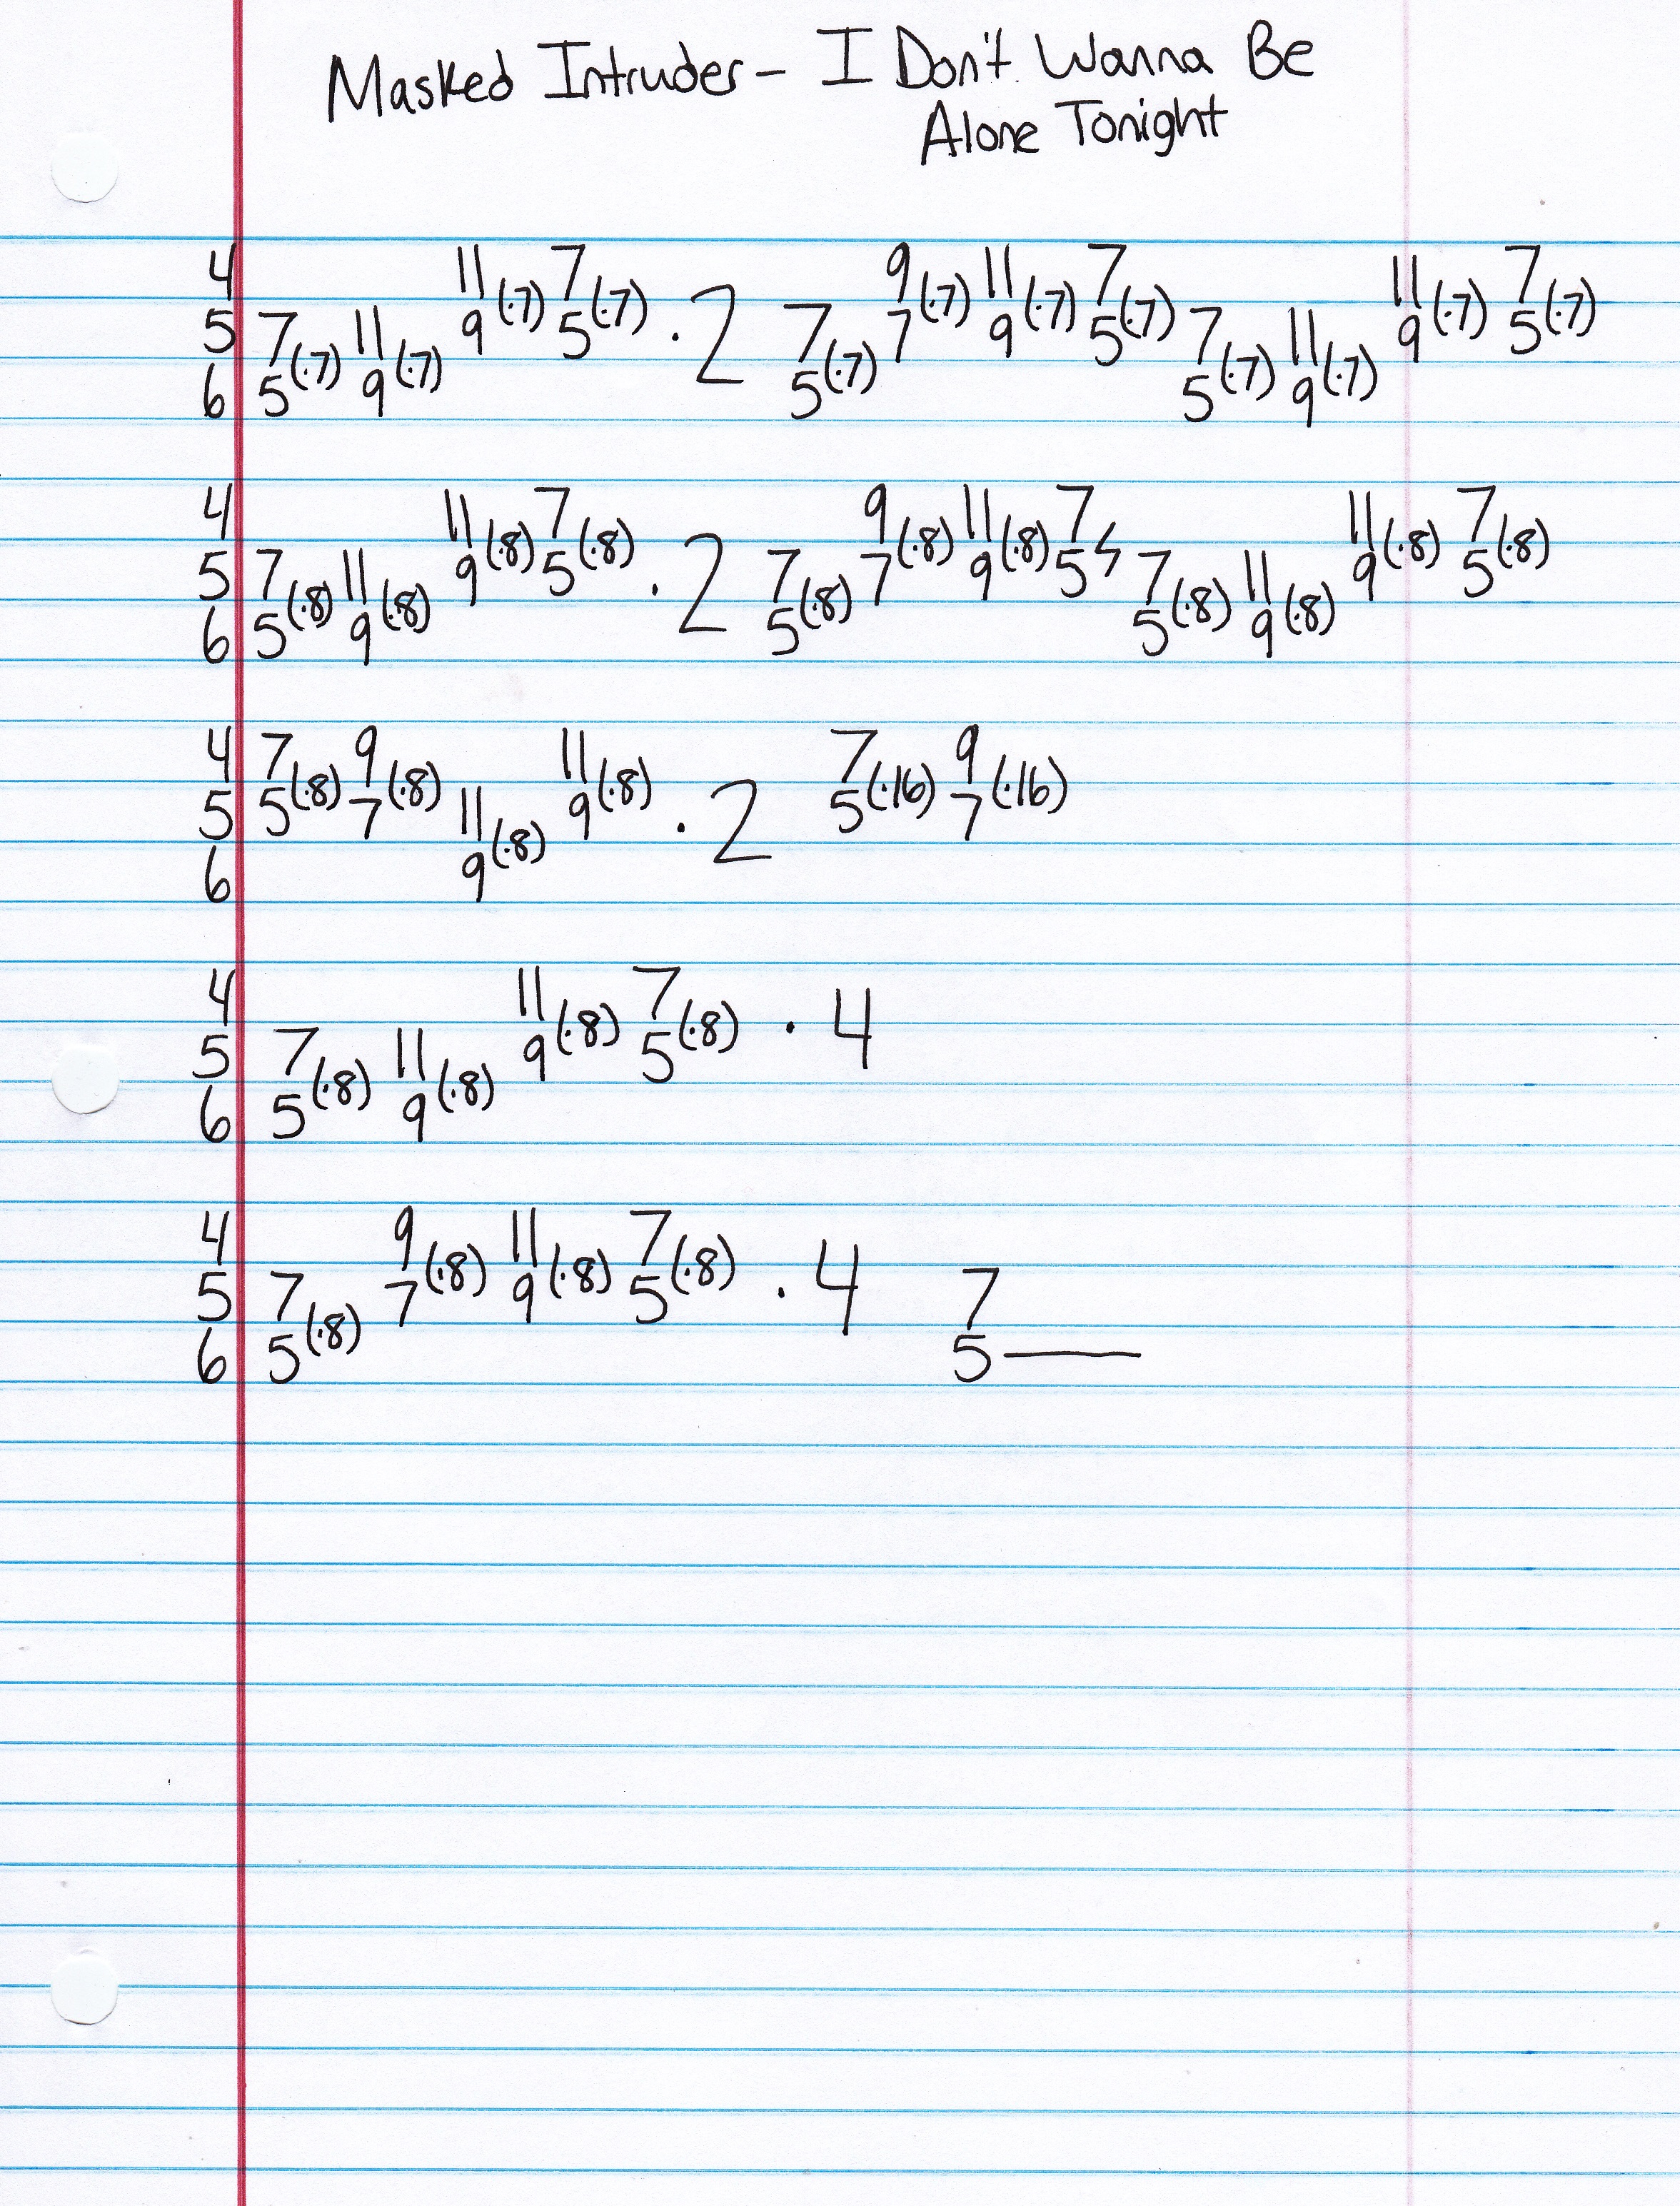 Masked Intruder - I Don't Wanna Be
Alone Tonight
4 11 7 9 11 7 11 7
5 7 11 9(·7) 5(·7) · 2 7 7(·7) 9(·7) 5(·7) 7 11 9(·7) 5(·7)
6 5(·7) 9(·7) 5(·7) 5(·7) 9(·7)
4 11 7 9 11 7 11 7
5 7 11 9(·8) 5(·8) · 2 7 7(·8) 9(·8) 5 7 11 9(·8) 5(·8)
6 5(·8) 9(·8) 5(·8) 5(·8) 9(·8)
4 7 9 11 7 9
5 5(·8) 7(·8) 11 9(·8) · 2 5(·16) 7(·16)
6 9(·8)
4 11 7
5 7 11 9(·8) 5(·8) · 4
6 5(·8) 9(·8)
4 9 11 7
5 7 7(·8) 9(·8) 5(·8) · 4 7
6 5(·8) 5—